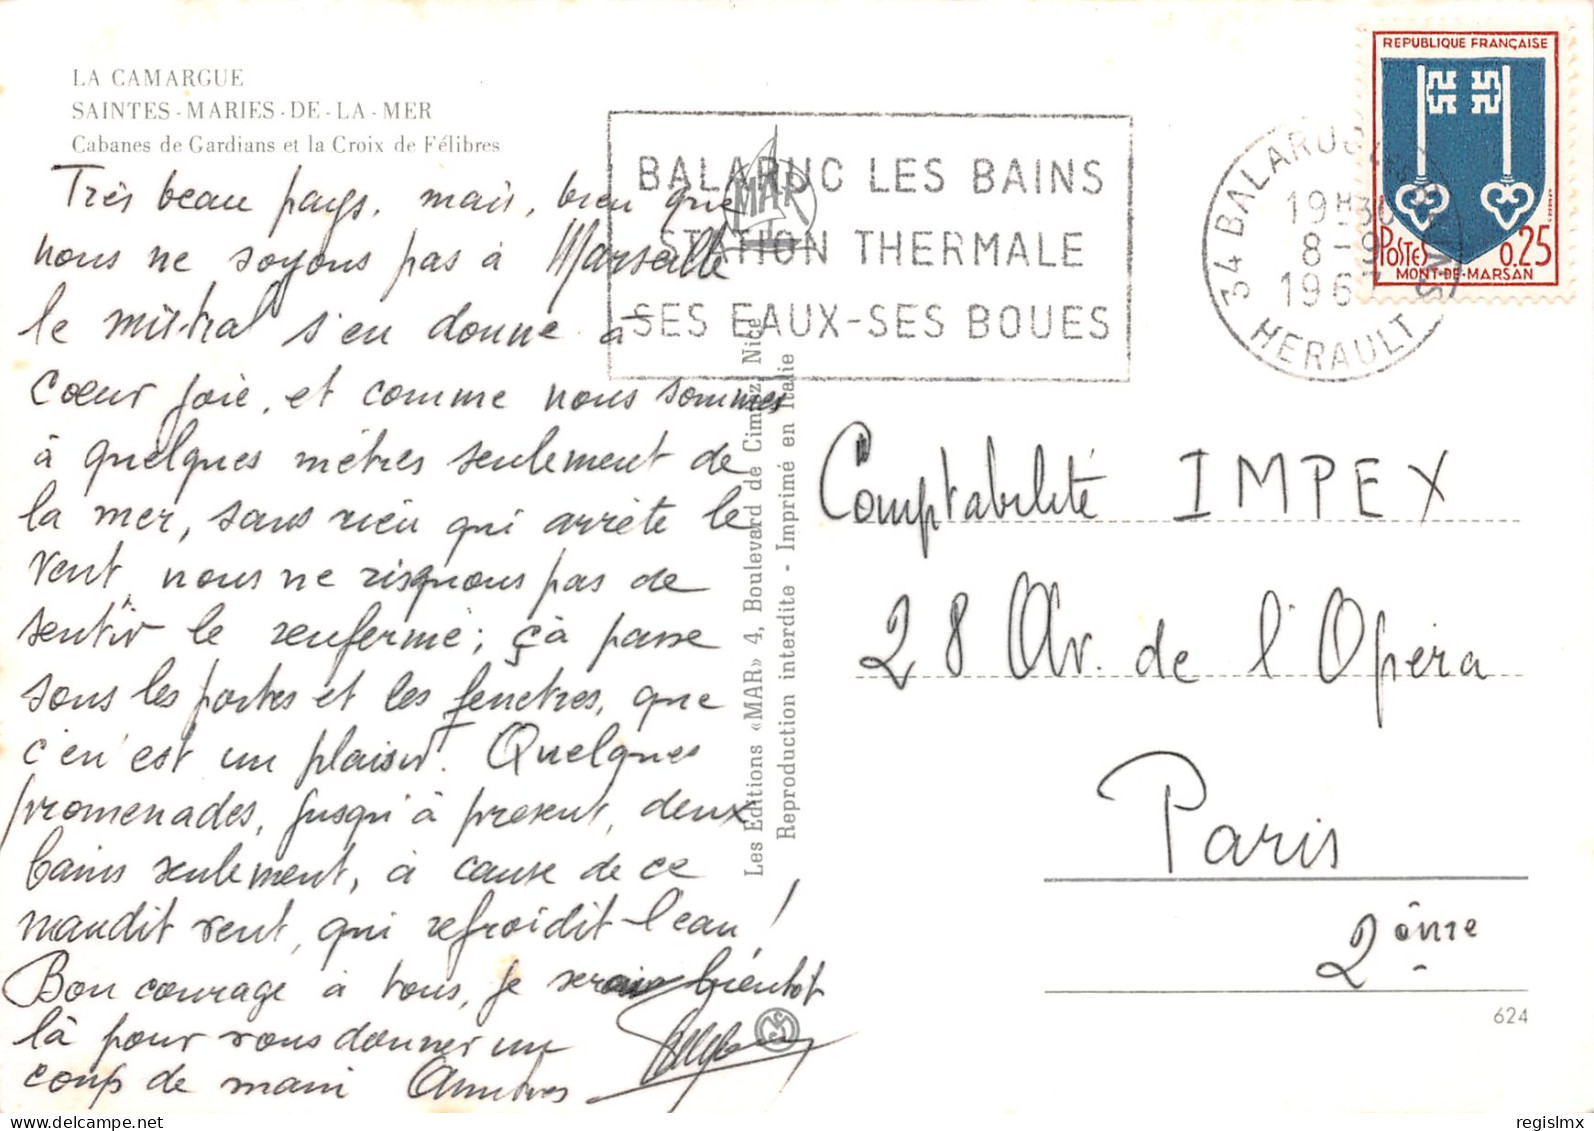 LA CAMARGUE
SAINTES-MARIES-DE-LA-MER
Cabanes de Gardians et la Croix de Félibres
Très beau pays, mais, bien que
nous ne soyons pas à Marseille
le mistral s'en donne à
Coeur joie, et comme nous sommes
à quelques mètres seulement de
la mer, sans rien qui arrête le
vent, nous ne risquons pas de
sentir le renfermé; çà passe
sous les portes et les fenêtres, que
c'en est un plaisir. Quelques
promenades, jusqu'à présent, deux
bains seulement, à cause de ce
maudit vent, qui refroidit l'eau!
Bon courage à tous, je serais bientôt
là pour vous donner un
coup de main Amitiés
BALARUC LES BAINS
STATION THERMALE
SES EAUX-SES BOUES
MAR
34 BALARUC LES BAINS
19H30
8-9
1967
HERAULT
REPUBLIQUE FRANÇAISE
POSTES 0,25
MONT-DE-MARSAN
Les Editions «MAR» 4, Boulevard de Cimiez, Nice
Reproduction interdite - Imprimé en Italie
Comptabilité IMPEX
28 Av. de l'Opéra
Paris
2ème
624
regislmx